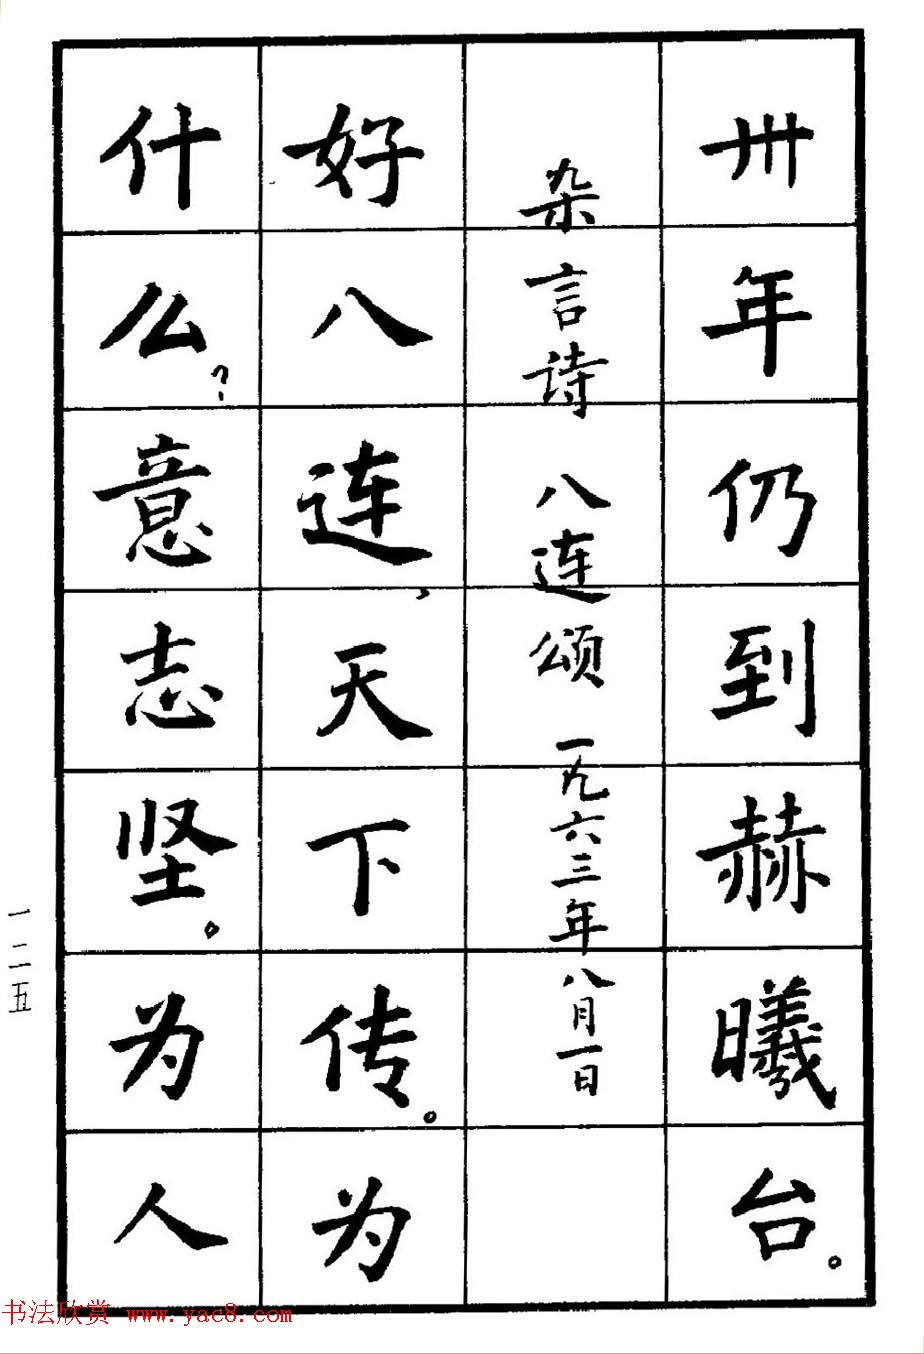 卅年仍到赫曦台。
杂言诗 八连颂 一九六三年八月一日
好八连、天下传。为
什么?意志坚。为人
一二五
书法欣赏 www.yac8.com